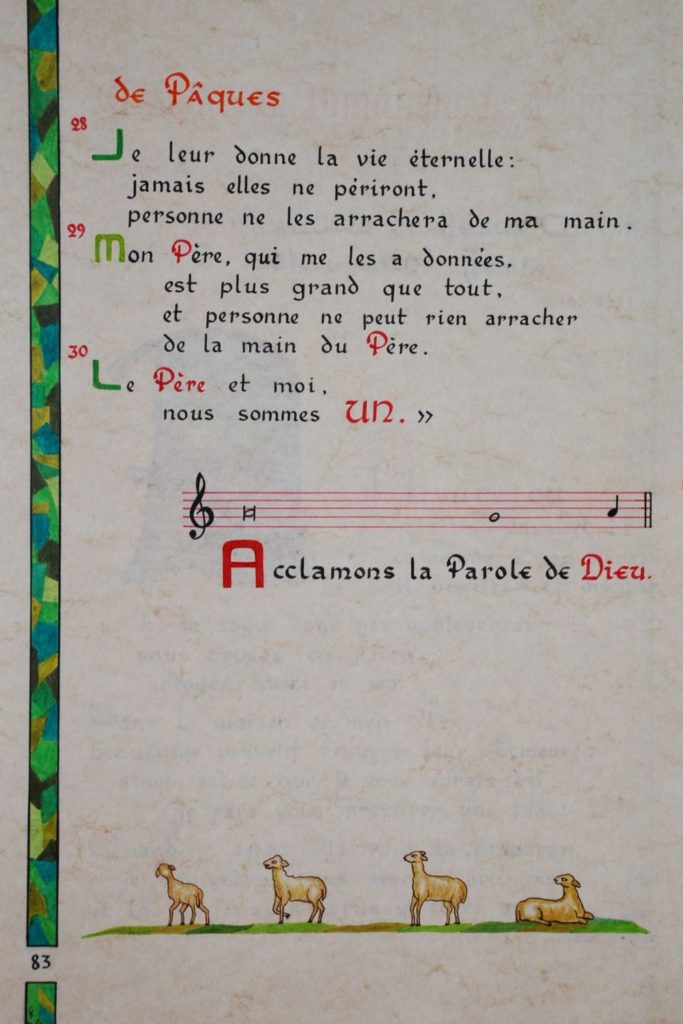 de Pâques
28 Je leur donne la vie éternelle:
jamais elles ne périront,
personne ne les arrachera de ma main.
29 Mon Père, qui me les a données,
est plus grand que tout,
et personne ne peut rien arracher
de la main du Père.
30 Le Père et moi,
nous sommes UN. »
Acclamons la Parole de Dieu.
83